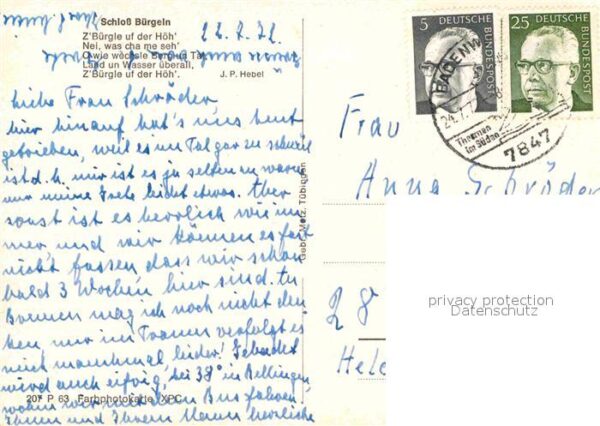 Schloß Bürgeln
Z'Bürgle uf der Höh'
Nei, was cha me seh'
O wie wechsle Berg un Tal
Land un Wasser überall,
Z'Bürgle uf der Höh'.
J. P. Hebel
22.7.72
Liebe Frau Schröder,
hier hinauf hat's uns heut
getrieben, weil es im Tal gar zu schwül
ist d.h. mir ist es ja selten zu warm
nur meine Grete leidet etwas. Aber
sonst ist es herrlich wie im
mer und wir können es fast
nicht fassen dass wir schon
bald 3 Wochen hier sind. An
Bremen mag ich noch nicht den
ken nur im Traum verfolgt es
mich manchmal leider! Gebadet
wird auch eifrig, bei 38° in Bellingen,
wohin wir mit dem Bus fahren.
Ihnen und Ihrem Mann herzliche
207 P 63 Farbphotokarte XPC
Gebr. Metz, Tübingen
5 DEUTSCHE BUNDESPOST
25 DEUTSCHE BUNDESPOST
BADENW
Thermen
im Süden
7847
Frau
Anna Schröder
28
privacy protection
Datenschutz